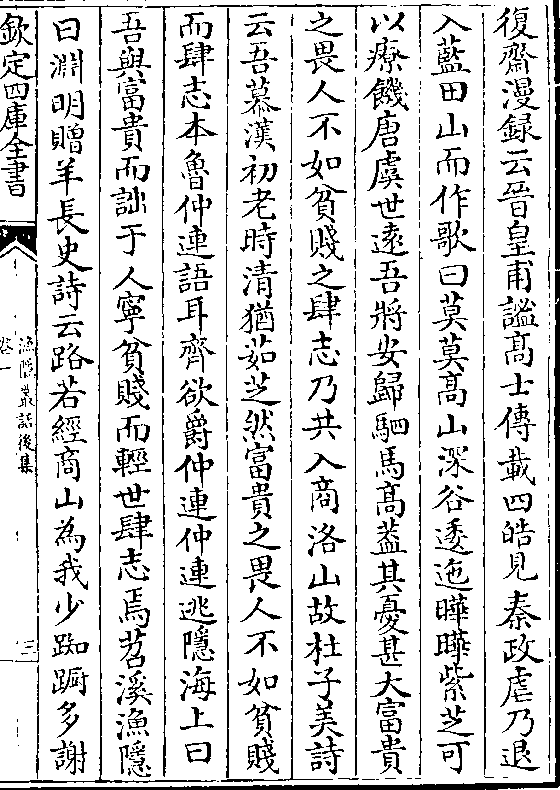 復齋漫録云晉皇甫謐髙士傳載四皓見秦政虐乃退
入藍田山而作歌曰莫莫髙山深谷逶迤曄曄紫芝可
以療饑唐虞世逺吾將安歸駟馬髙葢其憂甚大富貴
之畏人不如貧賤之肆志乃共入商洛山故杜子美詩
云吾慕漢初老時清猶茹芝然富貴之畏人不如貧賤
而肆志本魯仲連語耳齊欲爵仲連仲連逃隱海上曰
吾與富貴而詘于人寧貧賤而輕世肆志焉苕溪漁隱
曰淵明贈羊長史詩云路若經商山為我少踟蹰多謝
欽定四庫全書
漁隱叢話後集
卷一
三